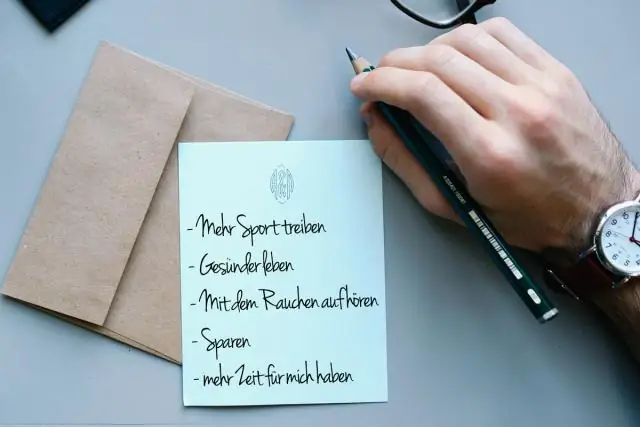 - Mehr Sport treiben
- Gesünder leben
- Mit dem Rauchen aufhören
- Sparen
- mehr Zeit für mich haben